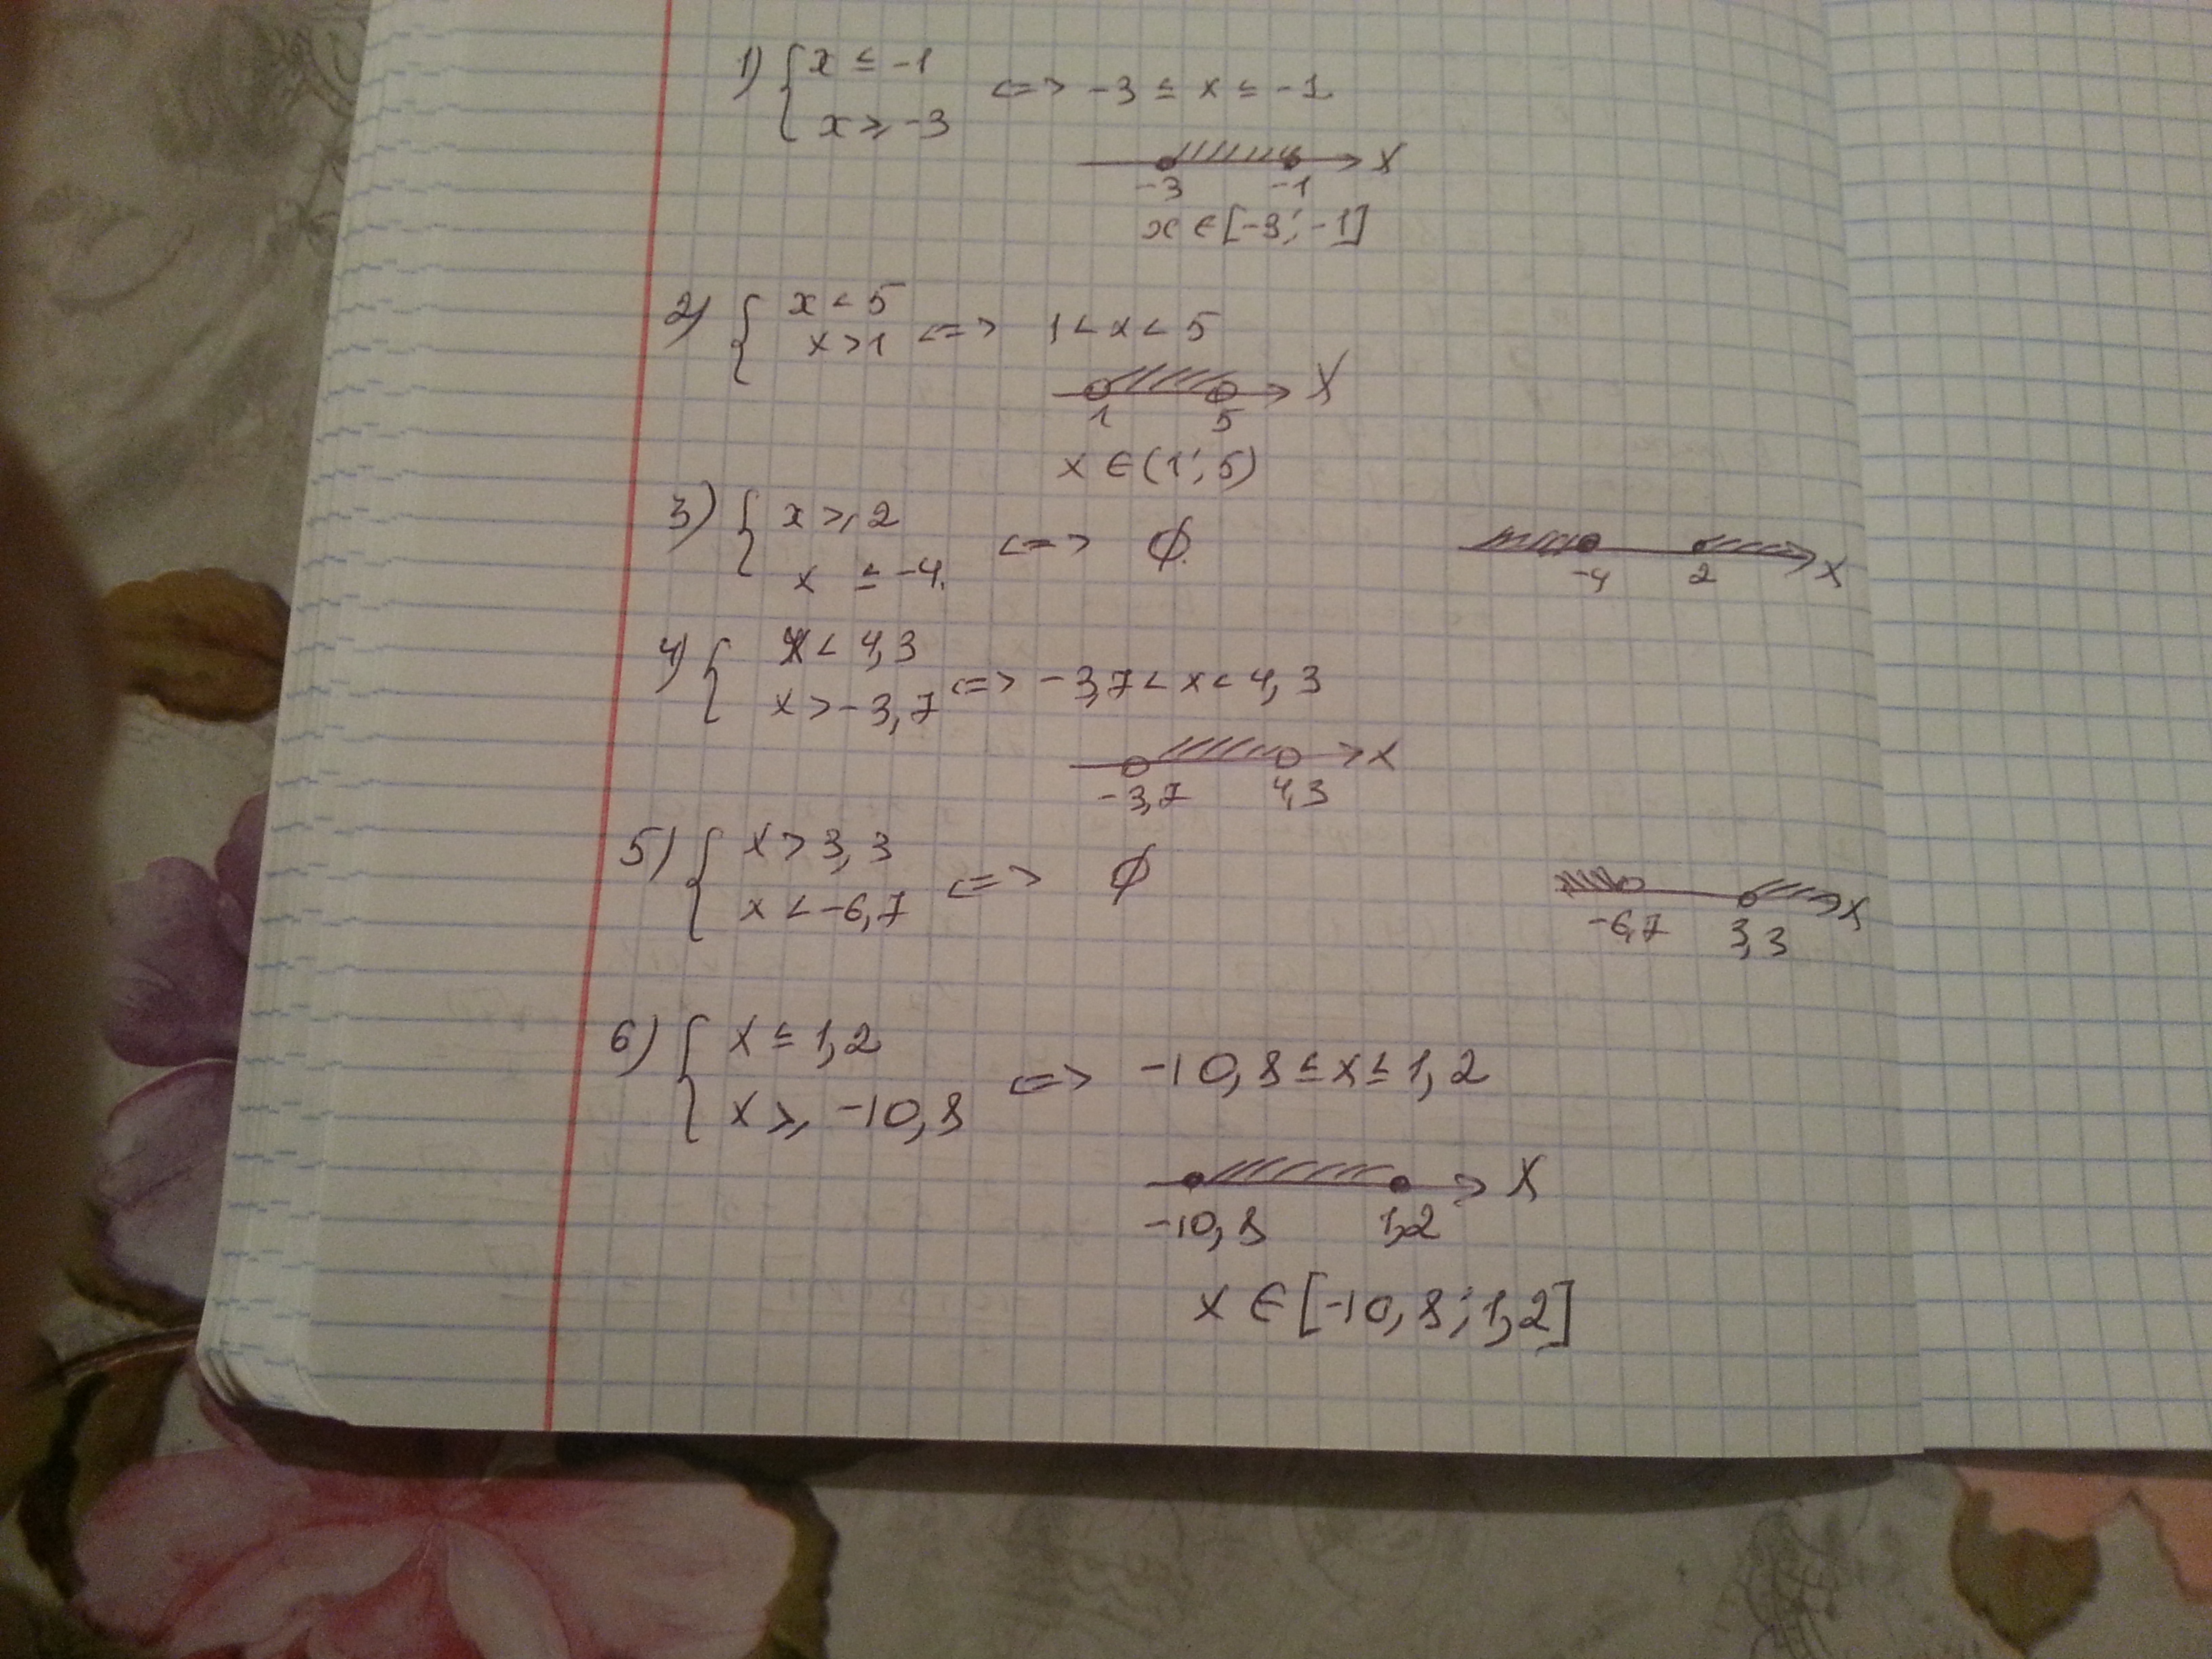 1) { x ≤ -1
x ≥ -3
<=> -3 ≤ x ≤ -1
-3 -1 X
x ∈ [-3; -1]
2) { x < 5
x > 1
<=> 1 < x < 5
1 5 X
x ∈ (1; 5)
3) { x ≥ 2
x ≤ -4.
<=> ∅.
-4 2 X
4) { x < 4,3
x > -3,7
<=> -3,7 < x < 4,3
-3,7 4,3 X
5) { x > 3,3
x < -6,7
<=> ∅
-6,7 3,3 X
6) { x ≤ 1,2
x ≥ -10,8
<=> -10,8 ≤ x ≤ 1,2
-10,8 1,2 X
x ∈ [-10,8; 1,2]